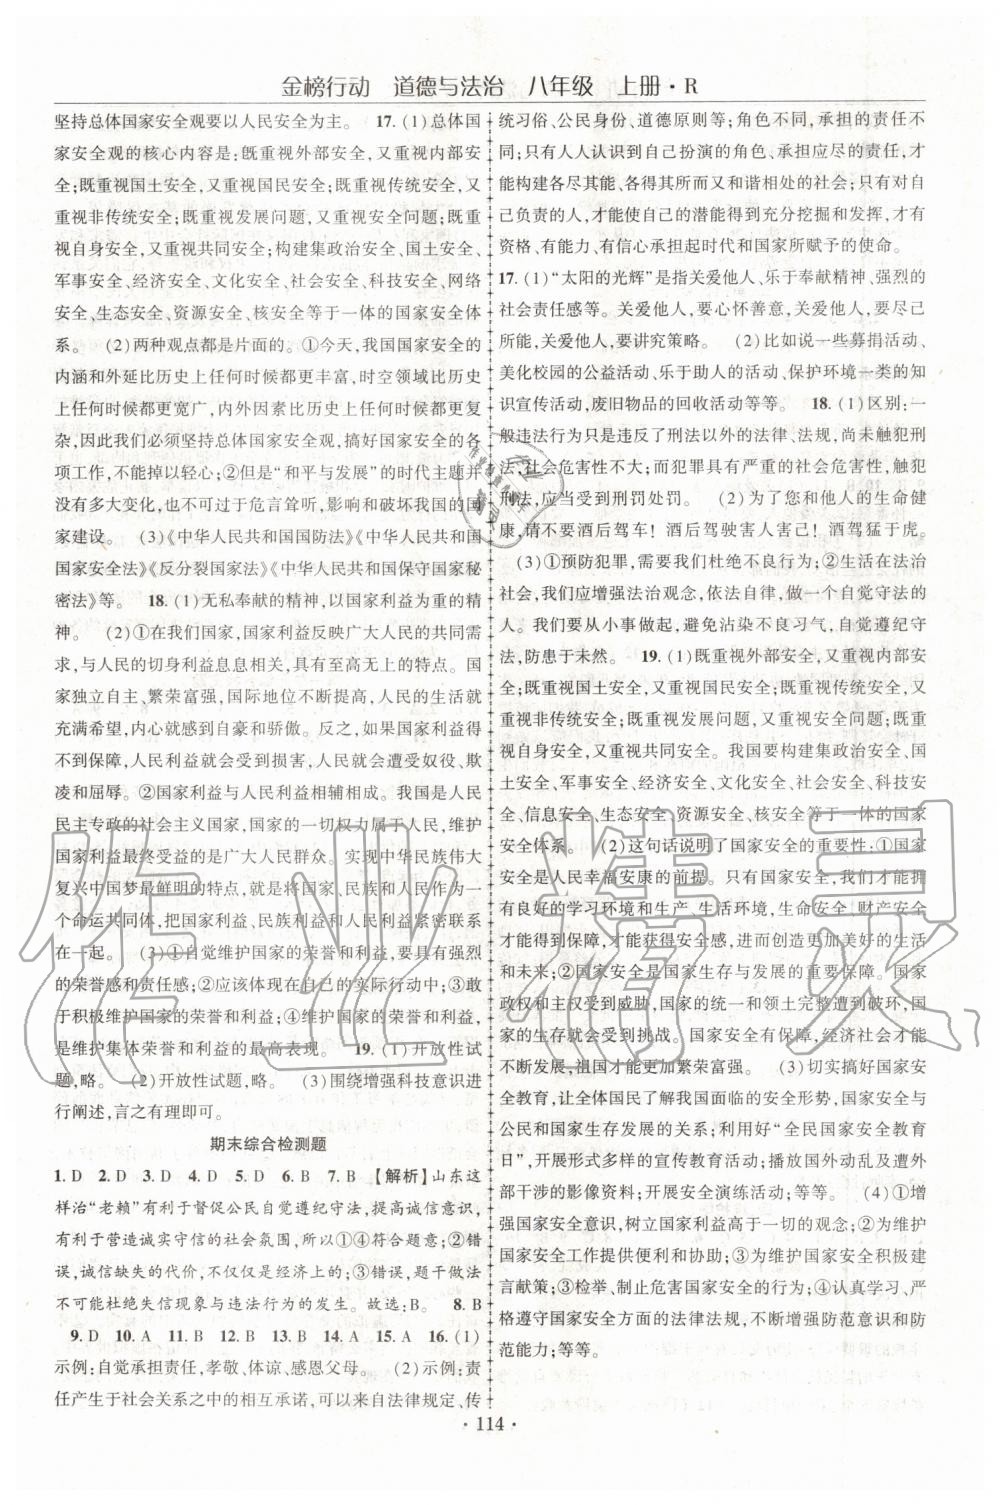 金榜行动 道德与法治 八年级 上册·R
坚持总体国家安全观要以人民安全为主。 17. (1)总体国
家安全观的核心内容是:既重视外部安全,又重视内部安
全;既重视国土安全,又重视国民安全;既重视传统安全,又
重视非传统安全;既重视发展问题,又重视安全问题;既重
视自身安全,又重视共同安全;构建集政治安全、国土安全、
军事安全、经济安全、文化安全、社会安全、科技安全、网络
安全、生态安全、资源安全、核安全等于一体的国家安全体
系。 (2)两种观点都是片面的。①今天,我国国家安全的
内涵和外延比历史上任何时候都更丰富,时空领域比历史
上任何时候都更宽广,内外因素比历史上任何时候都更复
杂,因此我们必须坚持总体国家安全观,搞好国家安全的各
项工作,不能掉以轻心;②但是“和平与发展”的时代主题并
没有多大变化,也不可过于危言耸听,影响和破坏我国的国
家建设。 (3)《中华人民共和国国防法》《中华人民共和国
国家安全法》《反分裂国家法》《中华人民共和国保守国家秘
密法》等。 18. (1)无私奉献的精神,以国家利益为重的精
神。 (2)①在我们国家,国家利益反映广大人民的共同需
求,与人民的切身利益息息相关,具有至高无上的特点。国
家独立自主、繁荣富强,国际地位不断提高,人民的生活就
充满希望,内心就感到自豪和骄傲。反之,如果国家利益得
不到保障,人民利益就会受到损害,人民就会遭受奴役、欺
凌和屈辱。②国家利益与人民利益相辅相成。我国是人民
民主专政的社会主义国家,国家的一切权力属于人民,维护
国家利益最终受益的是广大人民群众。实现中华民族伟大
复兴中国梦最鲜明的特点,就是国家、民族和人民作为一
个命运共同体,把国家利益、民族利益和人民利益紧密联系
在一起。 (3)①自觉维护国家的荣誉和利益,要具有强烈
的荣誉感和责任感;②应该体现在自己的实际行动中;③敢
于积极维护国家的荣誉和利益;④维护国家的荣誉和利益,
是维护集体荣誉和利益的最高表现。 19. (1)开放性试
题,略。 (2)开放性试题,略。 (3)围绕增强科技意识进
行阐述,言之有理即可。
期末综合检测题
1. D 2. D 3. D 4. D 5. D 6. B 7. B 【解析】山东这
样治“老赖”有利于督促公民自觉遵纪守法,提高诚信意识,
有利于营造诚实守信的社会氛围,所以①④符合题意;②错
误,诚信缺失的代价,不仅仅是经济上的;③错误,题干做法
不可能杜绝失信现象与违法行为的发生。故选:B。 8. B
9. D 10. A 11. B 12. B 13. B 14. A 15. A 16. (1)
示例:自觉承担责任,孝敬、体谅、感恩父母。 (2)示例:责
任产生于社会关系之中的相互承诺,可以来自法律规定、传
统习俗、公民身份、道德原则等;角色不同,承担的责任不
同;只有人人认识到自己扮演的角色、承担应尽的责任,才
能构建各尽其能、各得其所而又和谐相处的社会;只有对自
己负责的人,才能使自己的潜能得到充分挖掘和发挥,才有
资格、有能力、有信心承担起时代和国家所赋予的使命。
17. (1)“太阳的光辉”是指关爱他人、乐于奉献精神、强烈的
社会责任感等。关爱他人,要心怀善意,关爱他人,要尽己
所能,关爱他人,要讲究策略。 (2)比如说一些募捐活动、
美化校园的公益活动、乐于助人的活动、保护环境一类的知
识宣传活动,废旧物品的回收活动等等。 18. (1)区别:一
般违法行为只是违反了刑法以外的法律、法规,尚未触犯刑
法,社会危害性不大;而犯罪具有严重的社会危害性,触犯
刑法,应当受到刑罚处罚。 (2)为了您和他人的生命健
康,请不要酒后驾车!酒后驾驶害人害己!酒驾猛于虎。
(3)①预防犯罪,需要我们杜绝不良行为;②生活在法治
社会,我们应增强法治观念,依法自律,做一个自觉守法的
人。我们要从小事做起,避免沾染不良习气,自觉遵纪守
法,防患于未然。 19. (1)既重视外部安全,又重视内部安
全;既重视国土安全,又重视国民安全;既重视传统安全,又
重视非传统安全;既重视发展问题,又重视安全问题;既重
视自身安全,又重视共同安全。我国要构建集政治安全、国
土安全、军事安全、经济安全、文化安全、社会安全、科技安
全、信息安全、生态安全、资源安全、核安全等于一体的国家
安全体系。 (2)这句话说明了国家安全的重要性:①国家
安全是人民幸福安康的前提。只有国家安全,人们才能拥
有良好的学习环境和生产、生活环境,生命安全、财产安全
才能得到保障,才能获得安全感,进而创造更加美好的生活
和未来;②国家安全是国家生存与发展的重要保障。国家
政权和主权受到威胁,国家的统一和领土完整遭到破坏,国
家的生存就会受到挑战。国家安全有保障,经济社会才能
不断发展,祖国才能更加繁荣富强。 (3)切实搞好国家安
全教育,让全体国民了解我国面临的安全形势,国家安全与
公民和国家生存发展的关系;利用好“全民国家安全教育
日”,开展形式多样的宣传教育活动;播放国外动乱及遭外
部干涉的影像资料;开展安全演练活动;等等。 (4)①增
强国家安全意识,树立国家利益高于一切的观念;②为维护
国家安全工作提供便利和协助;③为维护国家安全积极建
言献策;④检举、制止危害国家安全的行为;④认真学习、严
格遵守国家安全方面的法律法规,不断增强防范意识和防
范能力;等等。
·114·
作业精灵